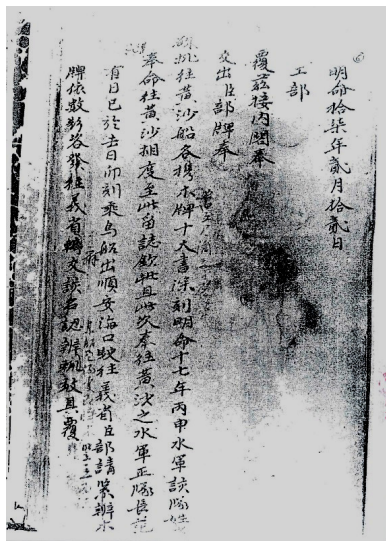 明命拾柒年貳月拾貳日
工部
覆茲接內閣奉
交出臣部牌奉
硃批往黃沙船各攜木牌十大書深刻明命十七年丙申水軍該隊姓
奉命往黃沙相度至此留誌欽此且此次奉往黃沙之水軍正隊長范
有日已於去日卯刻乘烏船出順安海口駛往義省臣部請緊辦木
牌依數 各發往義省轉交該名認辦輒敢具覆